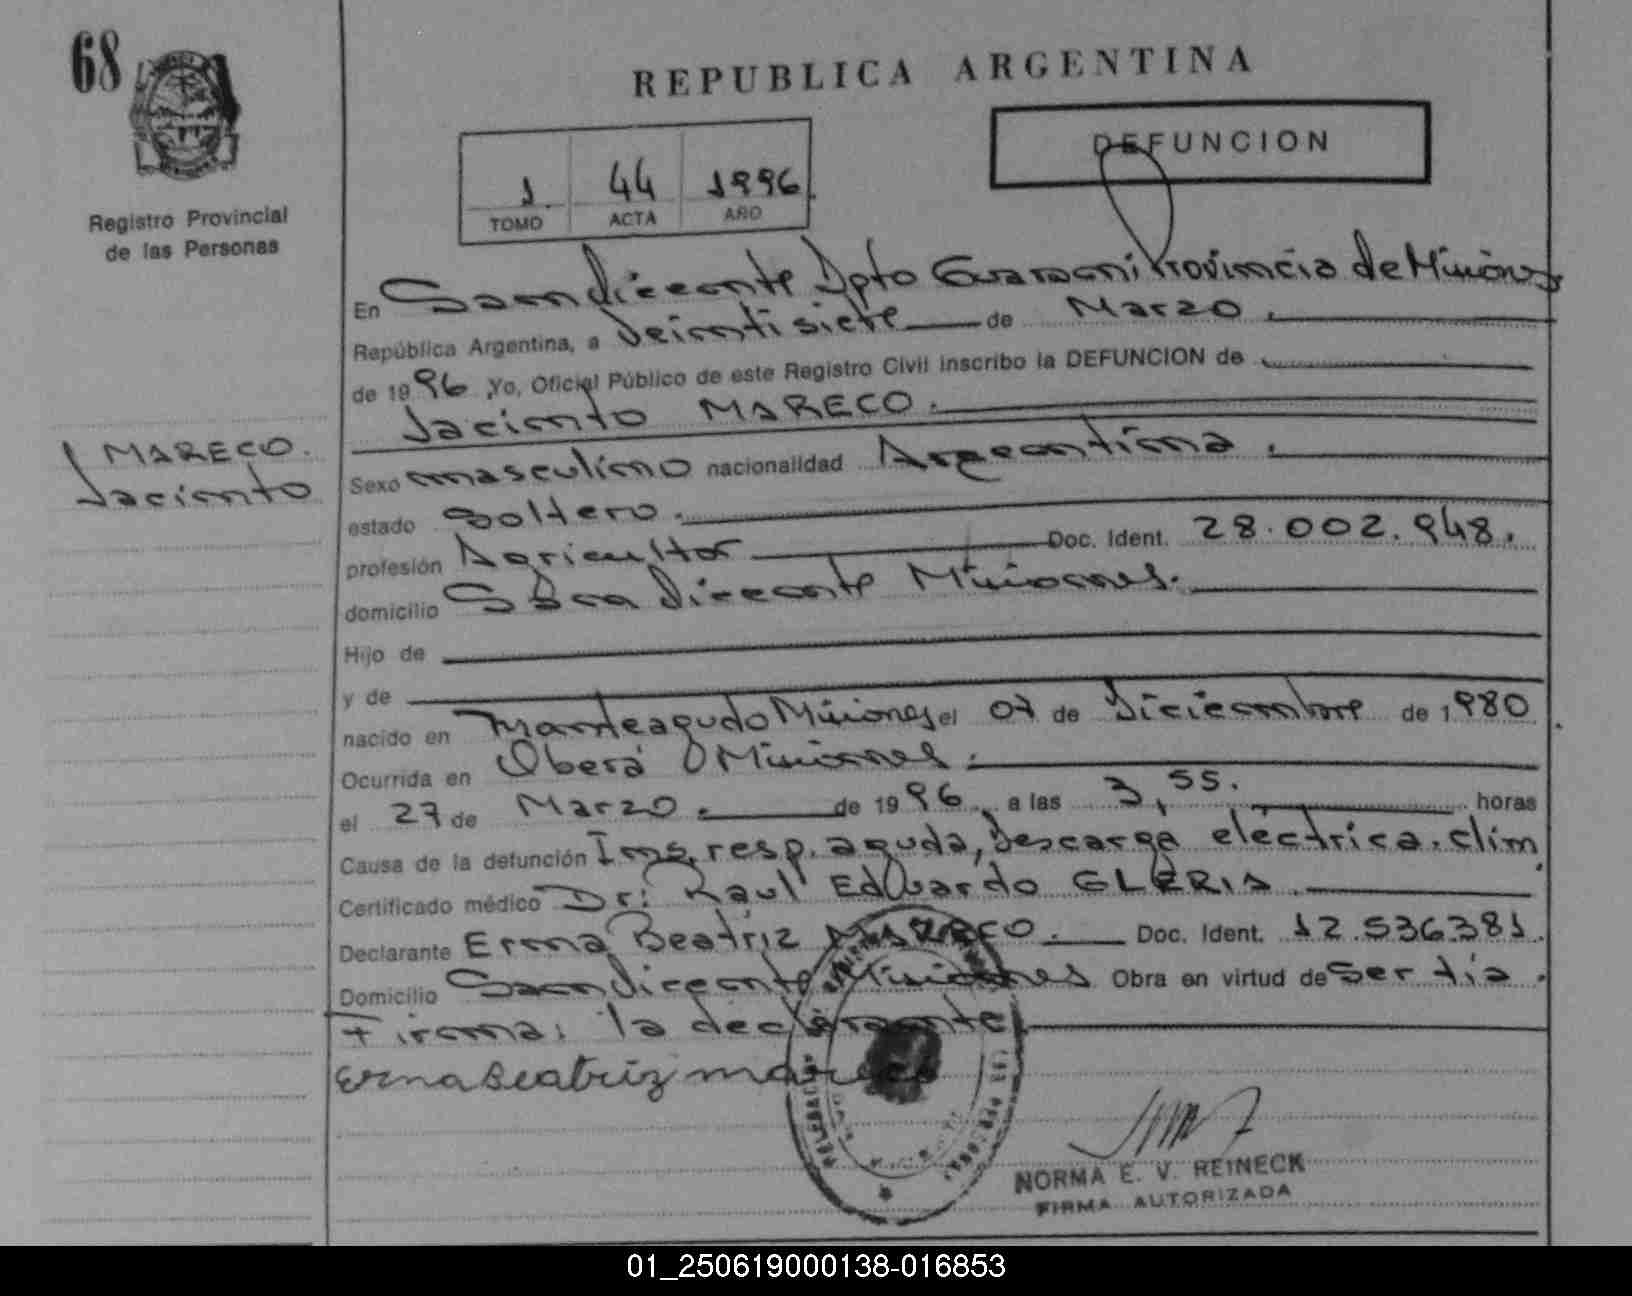 68
REPUBLICA ARGENTINA
DEFUNCION
1. 44 1996
TOMO ACTA AÑO
Registro Provincial
de las Personas
En San Vicente Dpto Guaraní Provincia de Misiones
República Argentina, a Veintisiete de Marzo.
de 1996 Yo, Oficial Público de este Registro Civil inscribo la DEFUNCION de
Jacinto MARECO.
MARECO.
Jacinto
Sexo masculino nacionalidad Argentina.
estado Soltero.
profesión Agricultor Doc. Ident. 28.002.948.
domicilio San Vicente Misiones.
Hijo de
y de
nacido en Monteagudo Misiones el 07 de Diciembre de 1980
Ocurrida en Oberá Misiones.
el 27 de Marzo. de 1996 a las 3,55. horas
Causa de la defunción Ins. resp. aguda, Descarga eléctrica. clim
Certificado médico Dr: Raul Eduardo GLERIA.
Declarante Erma Beatriz MARECO. Doc. Ident. 12.536381.
Domicilio San Vicente Misiones Obra en virtud de Ser tía.
Firma: la declarante
Erna Beatriz mareco
NORMA E. V. REINECK
FIRMA AUTORIZADA
01_250619000138-016853